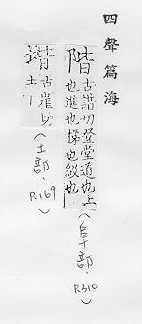 四聲篇海
階古諧切登堂道也上
也進也梯也級也
(阜部.R310)
古諧切
(土部.R169)